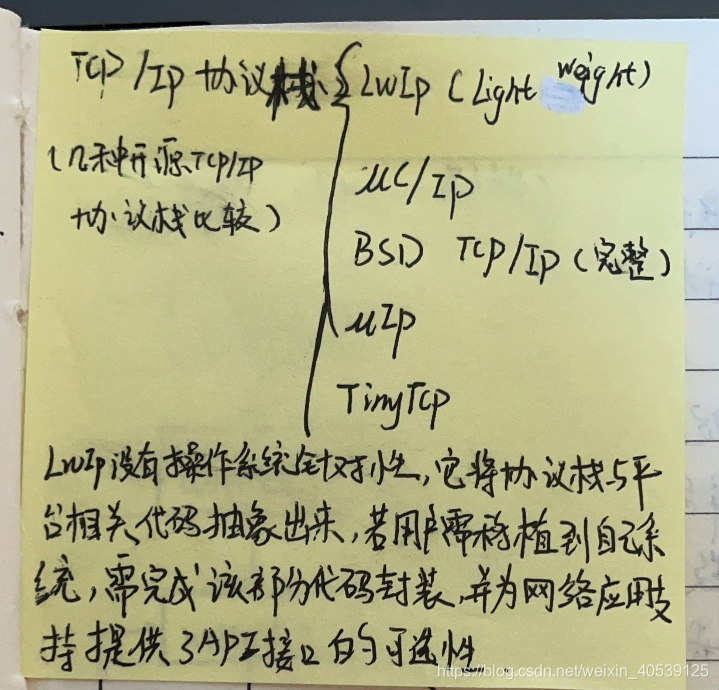 TCP/IP 协议栈 { LwIp (Light weight)
(几种开源TCP/IP
协议栈比较)
uC/Ip
BSD TCP/IP (完整)
uIp
TinyTcp
LwIp没有操作系统针对性,它将协议栈与平
台相关代码抽象出来,若用户需移植到自己系
统,需完成该部分代码封装,并为网络应用支
持提供了API接口的可选性
https://blog.csdn.net/weixin_40539125